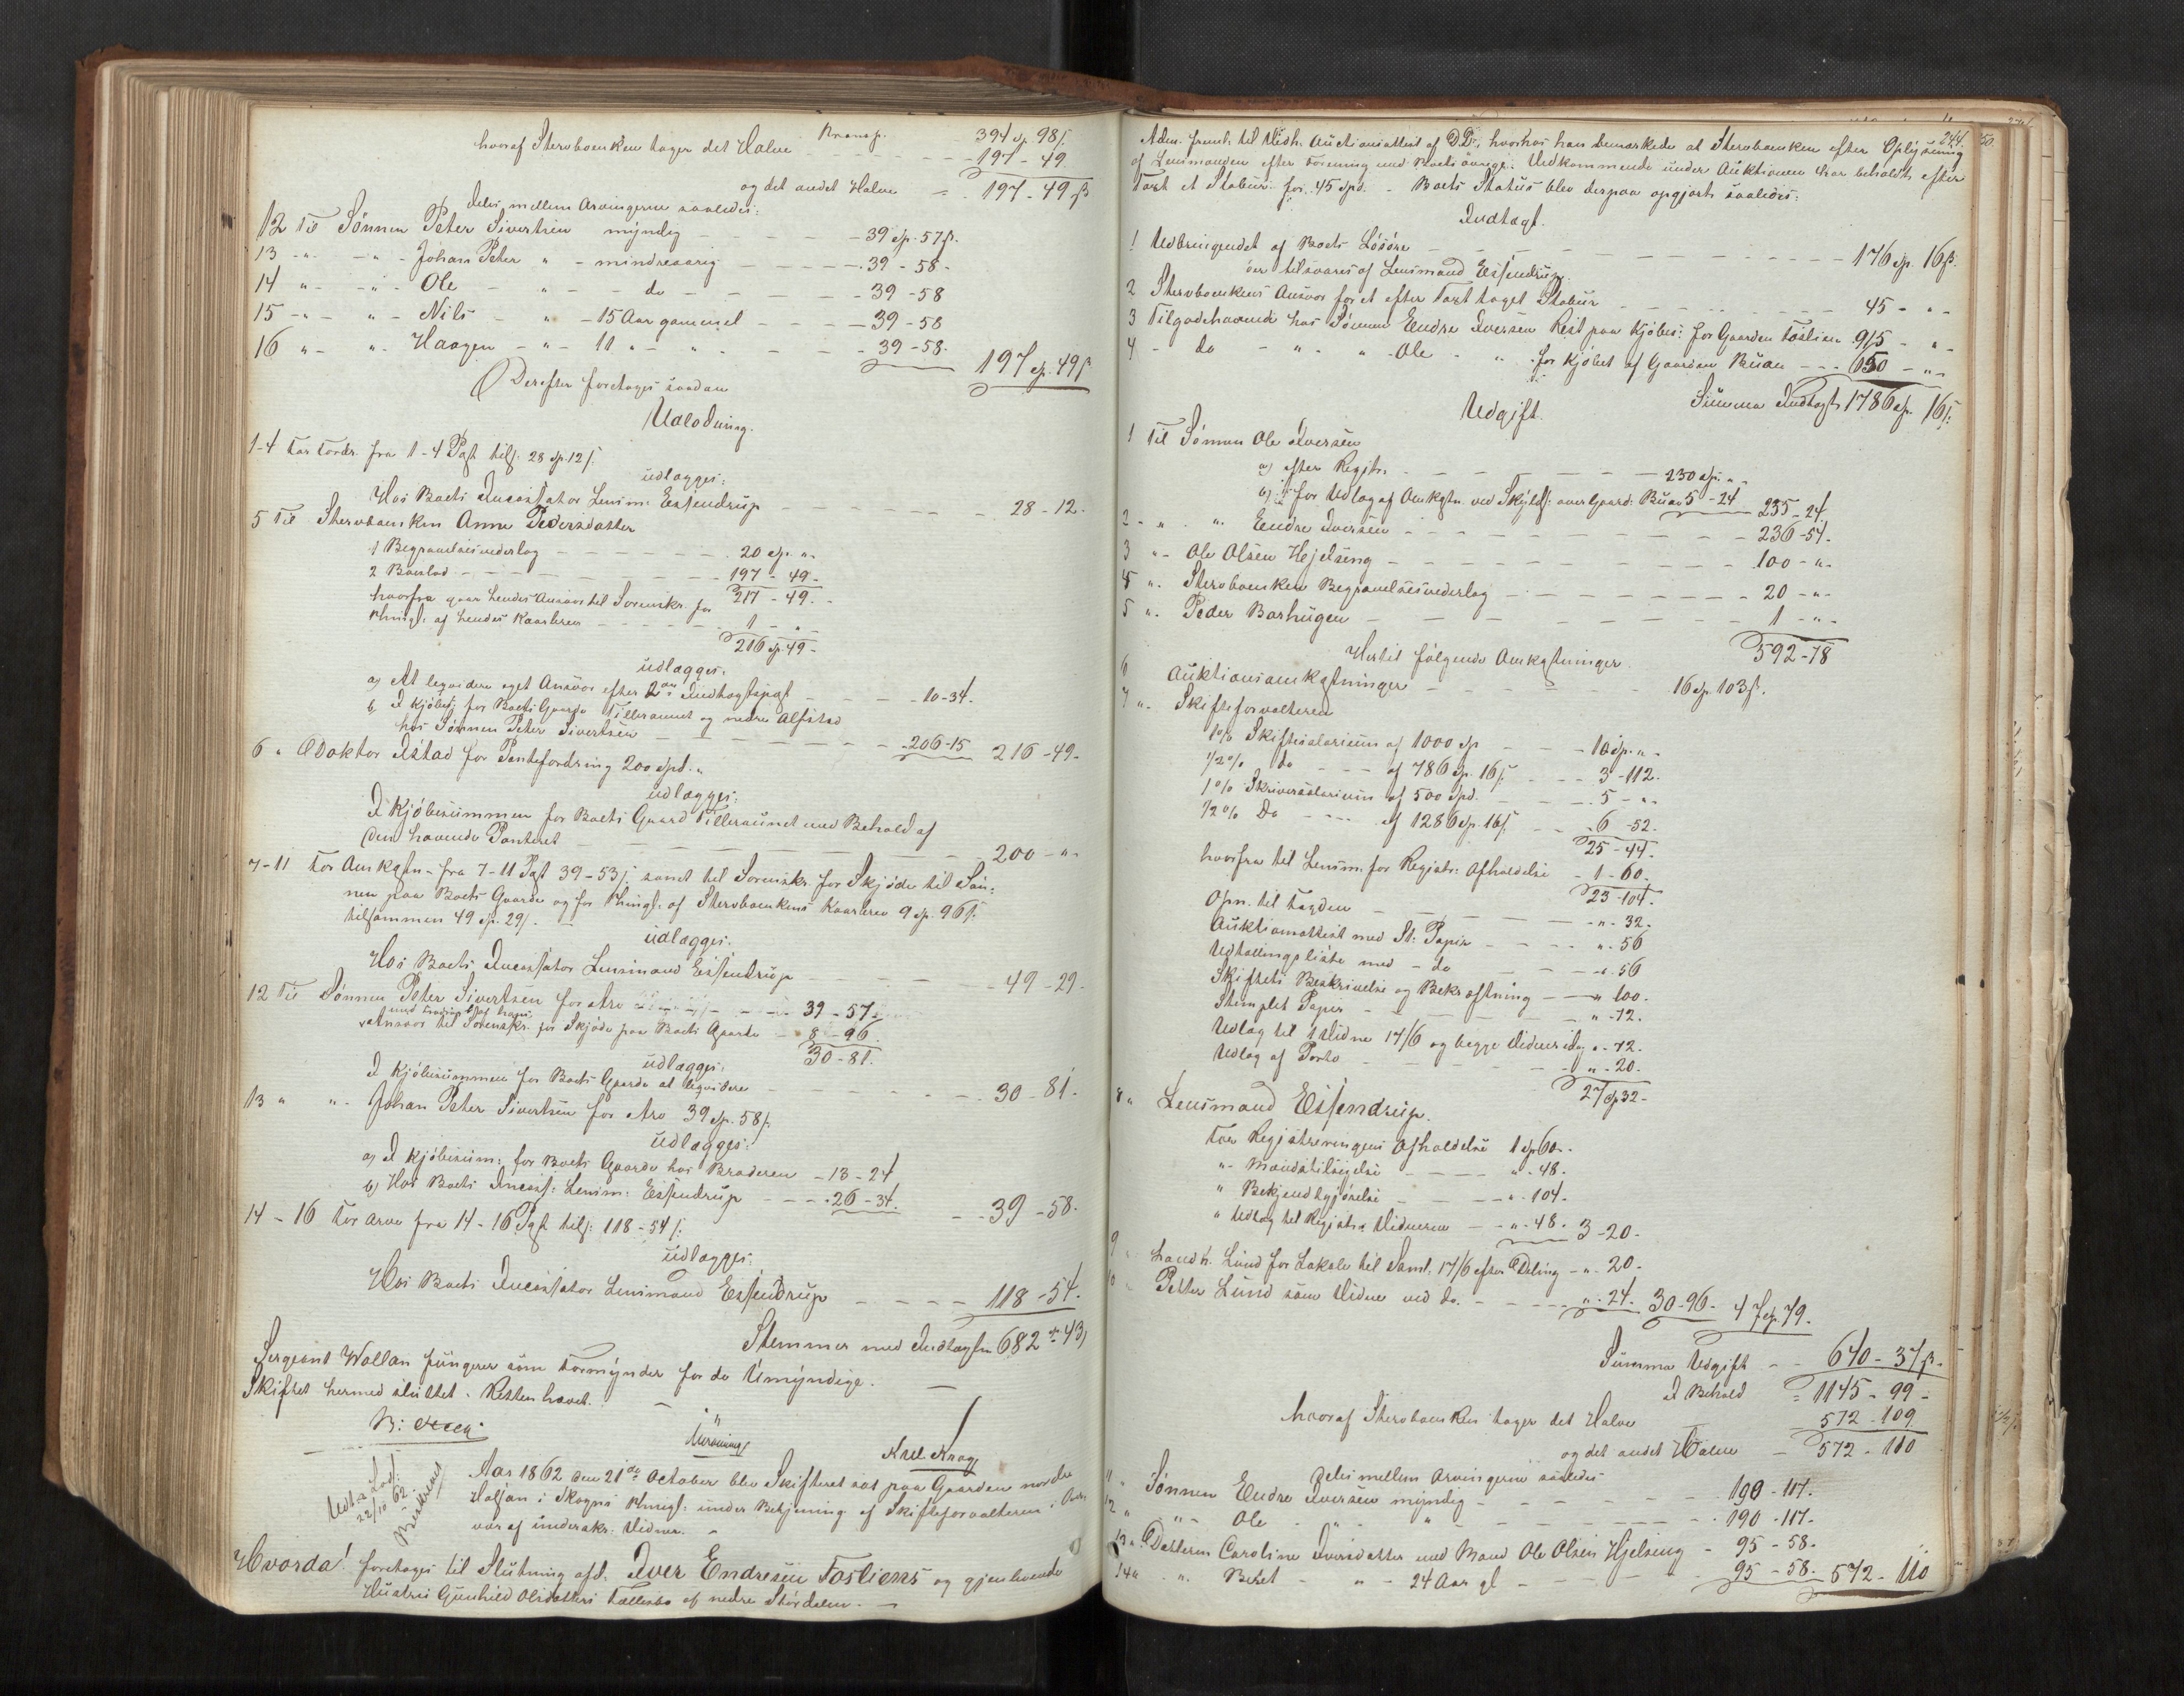 Transp. 394 sp. 98 s.
hvoraf Stervboenken tager det Halve - - - 197 - 49.
og det andet Halve = 197 - 49 s
deles mellem Arvingerne saaledes:
12 Til Sønnen Peter Sivertsen myndig - - - 39 sp. 57 s.
13 -"- -"- Johan Peter " - mindreaarig - - - 39 - 58 -
14 "- -"- Ole - " - - do - - - 39 - 58
15 -"- "- Nils - " - 15 Aar gammel - - - 39 - 58
16 "- " Haagen - " - 11 " - " - - - 39 - 58. 197 sp. 49 s
Derefter foretoges saadan
Udlodning.
1-4 For Fordr. fra 1-4 Post tils. 28 sp. 12 s.
udlægges:
Hos Boets Incassator Lensm: Essendrup - - - 28 - 12.
5 Til Stervboenken Anne Pedersdatter
1 Begravelsesvederlag - - - 20 sp. "-
2 Boeslod - - - 197 - 49 -
217 - 49.
hvorfra gaar hendes Ansvar til Sorenskr. for
Thingl. af hendes Kaarbrev - - - 1 - " -
216 sp. 49 -
udlægges:
a) At liqvidere eget Ansvar efter 2den Indtægtspost - - - 10 - 34.
b) I Kjøbes: for Boets Gaarde Tilleraunet og nedre Alfstad
hos Sønnen Peter Sivertsen - - - 206 - 15 216 - 49 -
6 " Doktor Istad for Pantefordring 200 spd. "
udlægges:
I Kjøbesummen for Boets Gaard Tilleraunet med Behold af
den havende Panteret - - - 200 - " -
7-11 For Omkostn. fra 7-11 Post 39 - 53 s. samt til Sorenskr. for Skjøde til Søn-
nen paa Boets Gaarde og for Thingl. af Stervboenkens Kaarbrev 9 sp. 96 s.
tilsammen 49 sp. 29 s. -
udlægges:
Hos Boets Incassator Lensmand Essendrup - - - 49 - 29.
12 Til Sønnen Peter Sivertsen for Arv - - - 39 - 57.
Ansvar til Sorenskr. for Skjøde paa Boets Gaarde - 8 - 96
30 - 81.
udlægges:
I Kjøbesummen for Boets Gaarde at liqvidere - - - 30 - 81.
13 " " Johan Peter Sivertsen for Arv 39 sp. 58 s.
udlægges:
a) I Kjøbesum: for Boets Gaarde hos Broderen - 13 - 24
b) Hos Boets Incass: Lensm: Essendrup - - - 26 - 34. - - 39 - 58.
14 - 16 For Arve fra 14 - 16 Post tils: 118 - 54 s.
udlægges:
Hos Boets Incassator Lensmand Essendrup - - - 118 - 54.
Stemmer med Indtægten 682 - 43 s
Sergeant Wollan fungerer som Formynder for de Umyndige. -
Skiftet hermed sluttet. Retten hævet. -
Aar 1862 den 21de October blev Skifteret sat paa Gaarden nordre
Halsan i Skogns Thingl: under Betjening af Skifteforvalteren i Over-
vær af underskr. Vidner. -
Udt. a Lod: 22/10 62. Beskrevet
Hvorda! foretoges til Slutning afd. Iver Endresen Fosliens og gjenlevende
Hustru Gunhild Olsdatters Fællesbo af nedre Størdalen. -
244. 50.
Adm. freml. til Vedh. Auctionsattest af D.D., hvorhos han bemærkede at Stervboenken efter Oplysning
af Lensmanden efter Forening med Boets øvrige Vedkommende under Auktionen har beholdt efter
Taxt et Stabur for 45 spd. - Boets Status blev derpaa opgjort saaledes:
Indtægt.
1 Udbringendet af Boets Løsøre - - - 176 sp. 16 s.
der tilsvares af Lensmand Essendrup.
2 Stervboenkens Ansvar for et efter Taxt taget Stabur - - - 45 - " -
3 Tilgodehavende hos Sønnen Endre Iversen Rest paa Kjøbes: for Gaarden Foslien 915 - " -
4 - do - " - " - Ole - " - for Kjøbet af Gaarden Buan - - - 650 - " -
Summa Indtægt 1786 sp. 16 s.
Udgift.
1 Til Sønnen Ole Iversen
a) efter Registr. - - - 230 sp. " -
b) for Udlæg af Omkostn. ved Skjøds: over Gaard: Buan 5 - 24 235 - 24.
2 - " - " Endre Iversen - - - 236 - 54.
3 "- Ole Olsen Hejelseng - - - 100 - " -
4 "- Stervboenken Begravelsesvederlag - - - 20 - " -
5 "- Peder Barhugen - - - 1 - " -
592 - 78
Hertil følgende Omkostninger
6 Auktionsomkostninger - - - 16 sp. 103 s.
7 " Skifteforvalteren
1% Skiftesalarium af 1000 sp - - - 10 sp. " -
1/2% do - - - af 786 sp. 16 s. - - - 3 - 112.
1% Skriversalarium af 500 spd. - - - 5 - " -
1/2% Do - - - af 1286 sp. 16 s. - - - 6 - 52.
25 - 44.
hvorfra til Lensm. for Registr: Afholdelse - 1 - 60.
23 - 104.
Opn. til Taxten - - - " - 32.
Auktionsattest med St: Papir - - - " - 56
Udtællingsliste med - do - - - " - 56
Skiftets Beskrivelse og Bekræftning - - - " 100.
Stemplet Papir - - - " - 12.
Udlæg til 1 Vidne 17/6 og begge Vidner idag " - 72.
Udlæg af Porto - - - " - 20.
27 sp 32 -
8 " Lensmand Essendrup.
For Registreringens Afholdelse 1 sp 60 -
"- Mandstilsigelse - - - " - 48.
" Bekjendtgjørelse - - - " - 104.
" Udlæg til Registr. Vidnerne - - " - 48. 3 - 20 -
9 Landh. Lund for Lokale til Saml. 17/6 efter Deling - " - 20.
10 Petter Lund som Vidne ved do. - - - " - 24. 30 - 96 - 47 sp. 79.
Summa Udgift - - 640 - 37 s.
I Behold = 1145 - 99 -
hvoraf Stervboenken tager det Halve 572 - 109
og det andet Halve - 572 - 110
deles mellem Arvingerne saaledes
11 " Sønnen Endre Iversen myndig - - - 190 - 117.
12 " "- Ole - " - " - - - 190 - 117.
13 " Datteren Caroline Iversdatter med Mand Ole Olsen Hjelseng - 95 - 58 -
14 " - " Beret - " - 24 Aar gl - - - 95 - 58. 572 - 110